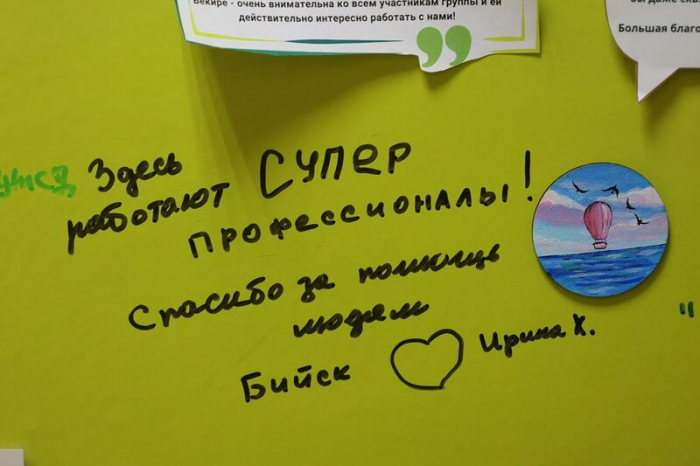 Бекире - очень внимательна ко всем участникам группы и ей
действительно интересно работать с нами!
Большая благо
Здесь
работают СУПЕР
ПРОФЕССИОНАЛЫ!
Спасибо за помощь
людям
Бийск Ирина Х.